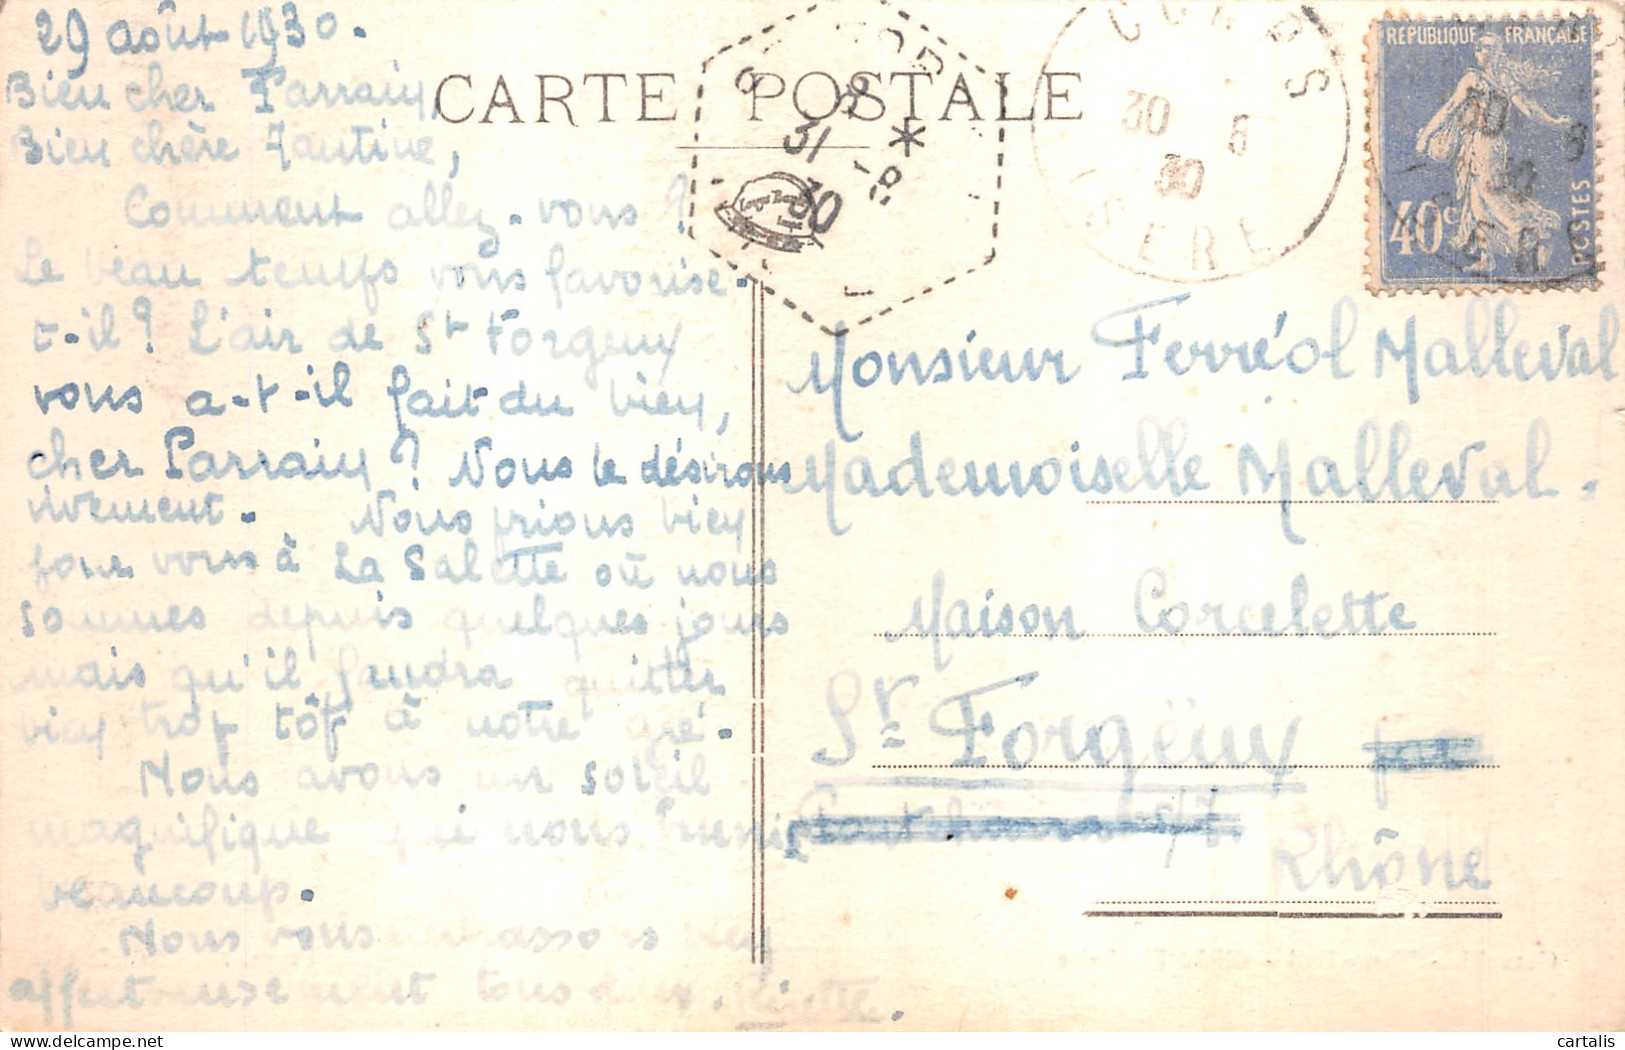 29 août 1930.
Bien cher Parrain,
Bien chère Fantine,
Comment allez-vous ?
Le beau temps vous favorise-
t-il ? L'air de St Forgeux
vous a-t-il fait du bien,
cher Parrain ? Nous le désirons
vivement. Nous prions bien
pour vous à La Salette où nous
sommes depuis quelques jours
mais qu'il faudra quitter
bien trop tôt à notre gré.
Nous avons un soleil
magnifique qui nous
beaucoup.
Nous vous embrassons bien
affectueusement tous deux.
CARTE POSTALE
31 -8
30
CORPS
30 8
30
ISERE
REPUBLIQUE FRANÇAISE
40c
POSTES
30 8
30
Monsieur Ferréol Malleval
Mademoiselle Malleval.
Maison Corcelette
St Forgeux
Rhône
cartalis